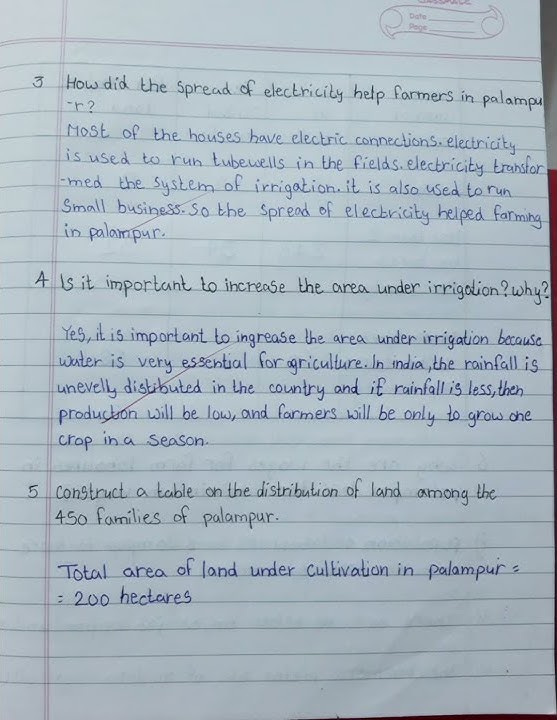 CLASSMATE
Date
Page
3 How did the spread of electricity help farmers in palampu
-r?
Most of the houses have electric connections. electricity
is used to run tubewells in the fields. electricity transfor
-med the system of irrigation. it is also used to run
Small business. So the spread of electricity helped farming
in palampur.
4 Is it important to increase the area under irrigation? why?
Yes, it is important to ingrease the area under irrigation because
water is very essential for griculture. In india, the rainfall is
unevelly distibuted in the country and if rainfall is less, then
production will be low, and farmers will be only to grow one
crop in a season.
5 construct a table on the distribution of land among the
450 families of palampur.
Total area of land under cultivation in palampur =
= 200 hectares